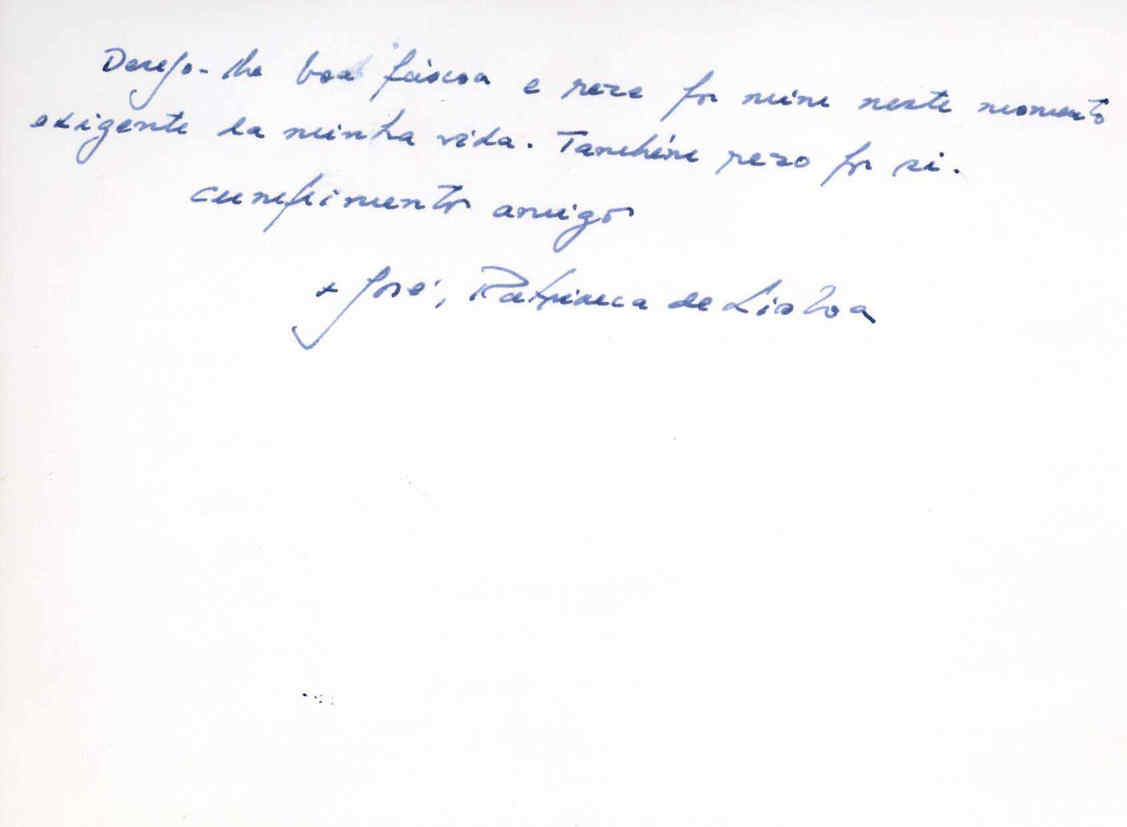 Desejo-lhe boa Páscoa e reze por mim neste momento
exigente da minha vida. Também rezo por si.
Cumprimentos amigos
+ José, Patriarca de Lisboa